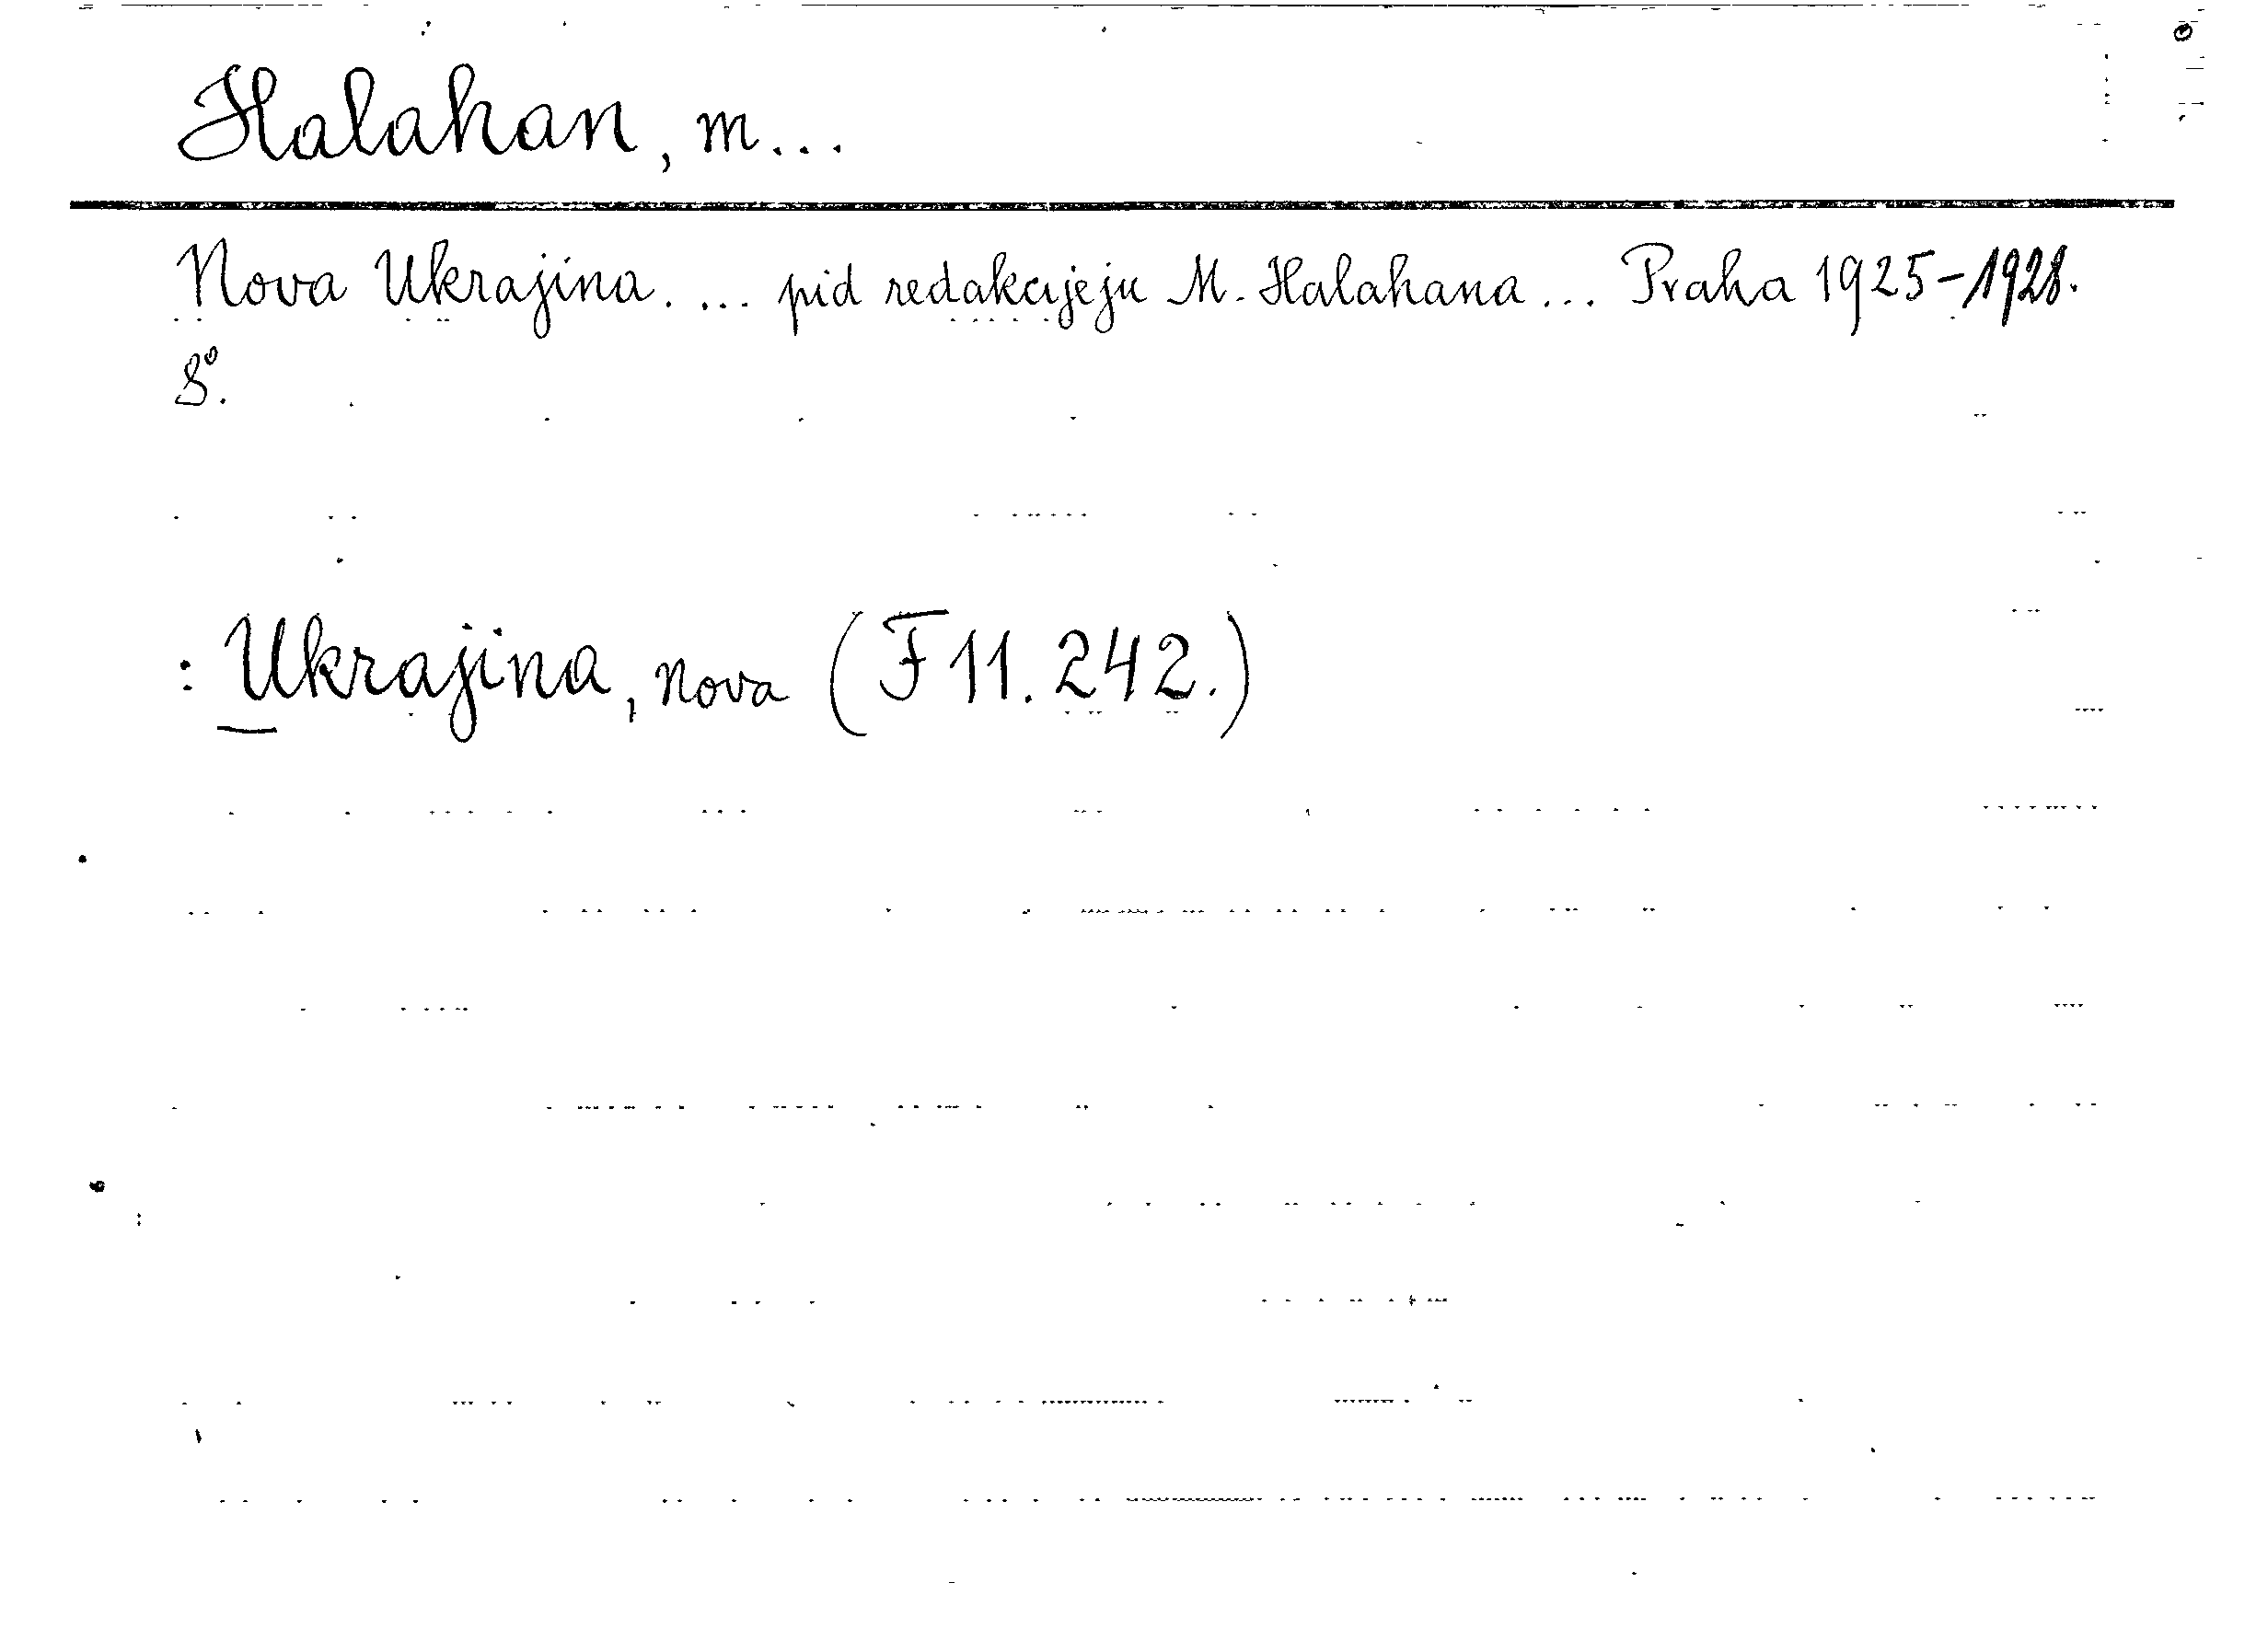 Halahan, M...
Nova Ukrajina. ... pid redakcijeju M. Halahana... Praha 1925-1928.
8°.
: Ukrajina, nova (F 11.242.)